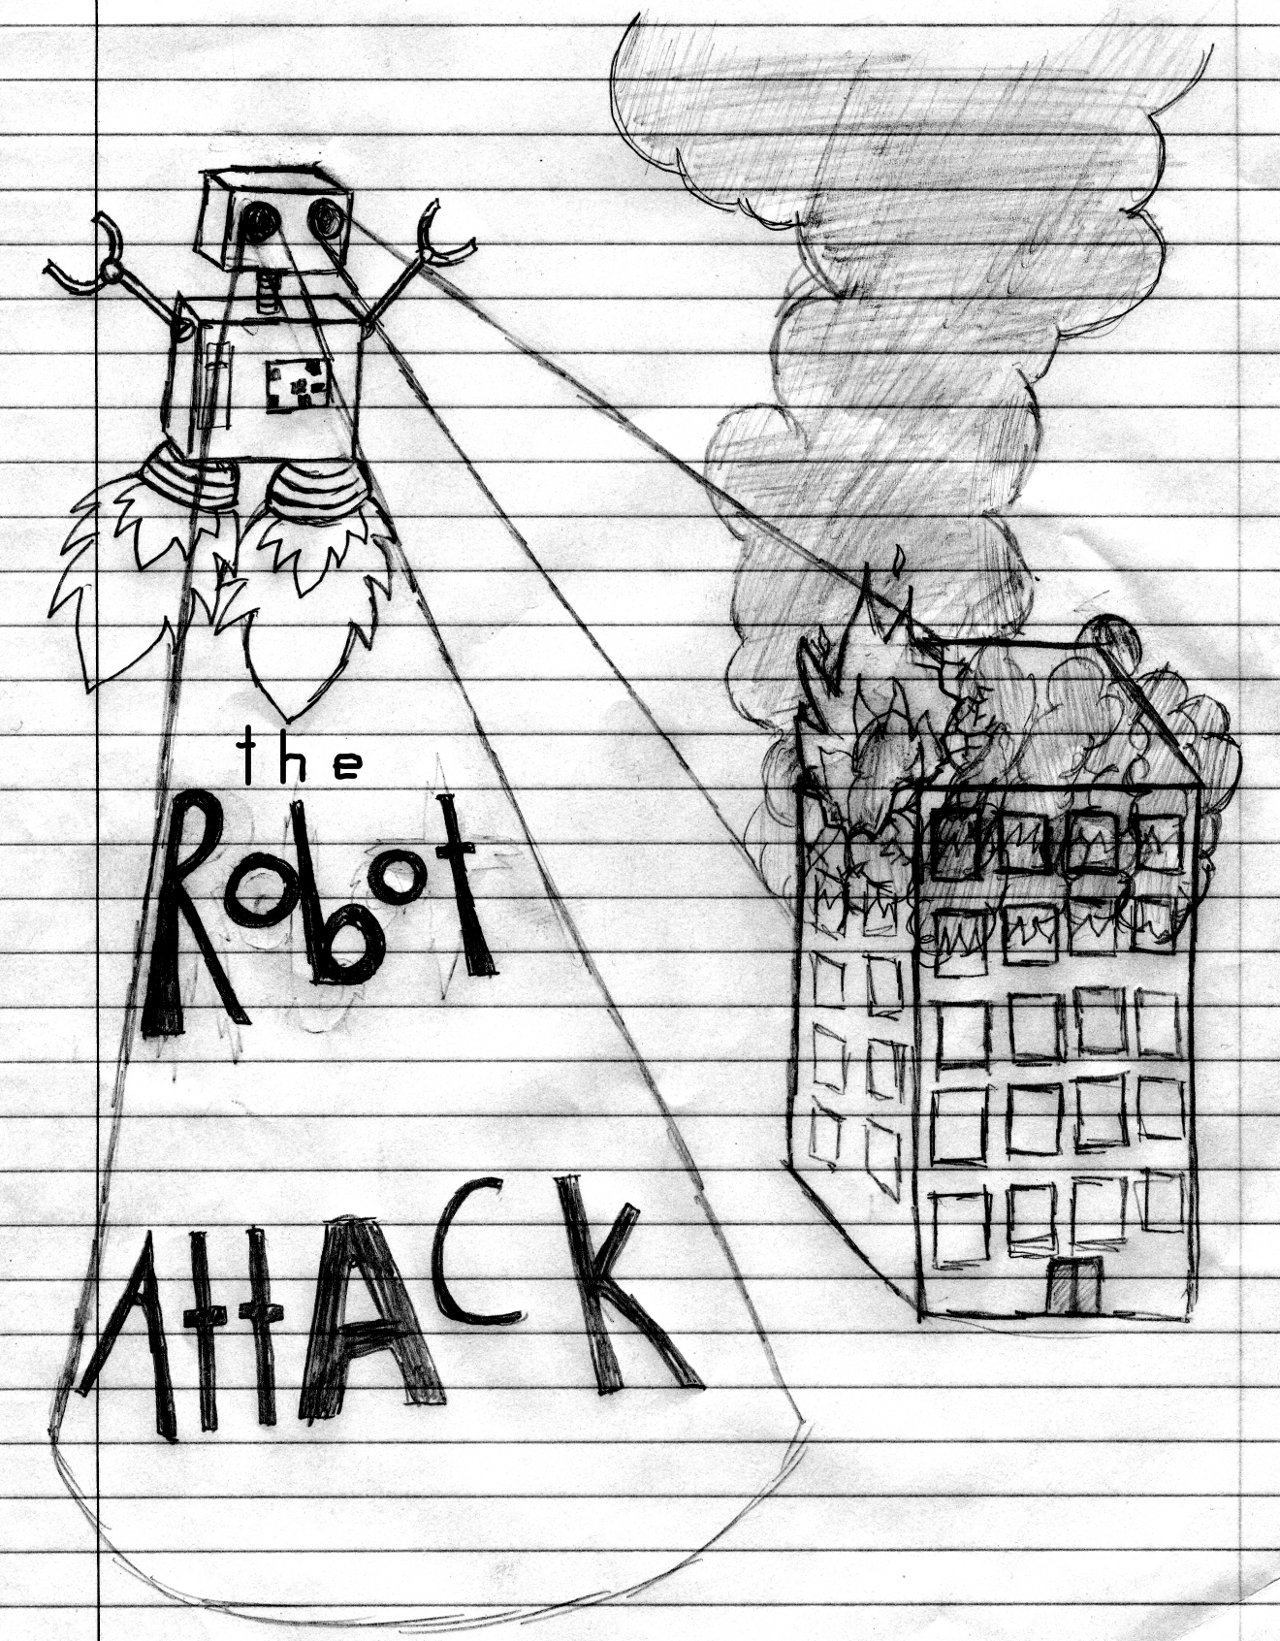 the
Robot
AttACK